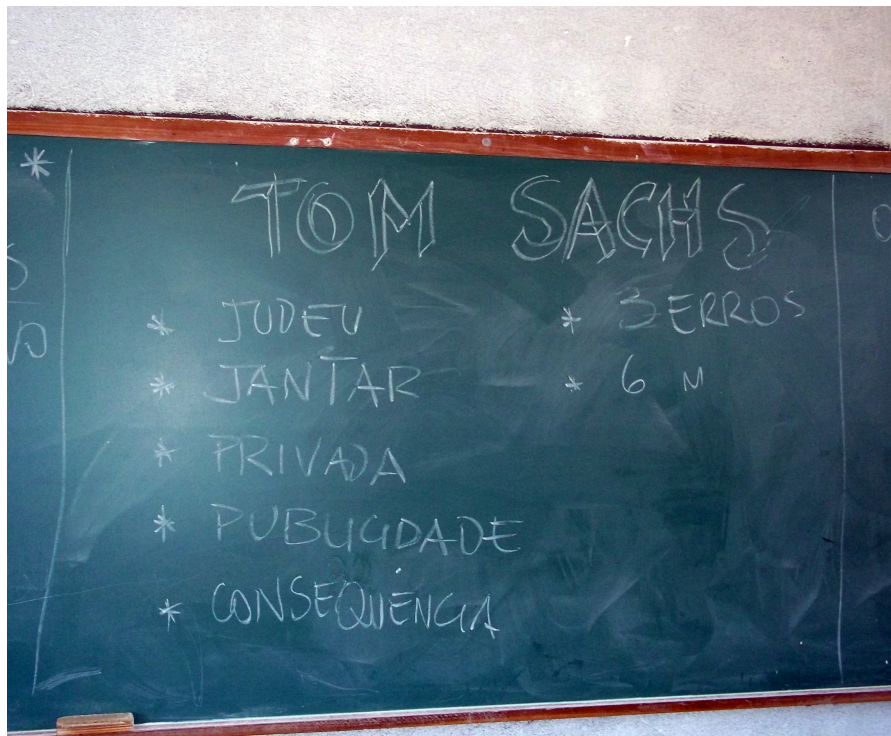 *
TOM SACHS
* JUDEU
* JANTAR
* PRIVADA
* PUBLICIDADE
* CONSEQUÊNCIA
* 3 ERROS
* 6 M